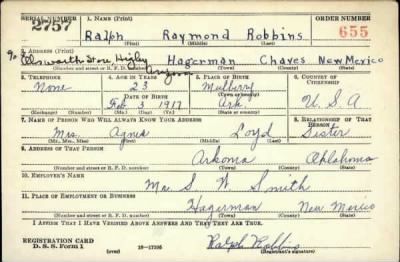 SERIAL NUMBER 1. NAME (Print) ORDER NUMBER
2757 Ralph Raymond Robbins 655
(First) (Middle) (Last)
% Elsworth Store, Higley
2. ADDRESS (Print)
Arizona
Hagerman Chaves New Mexico
(Number and street or R. F. D. number) (Town) (County) (State)
3. TELEPHONE 4. AGE IN YEARS 5. PLACE OF BIRTH 6. COUNTRY OF CITIZENSHIP
None 23 Mulberry
DATE OF BIRTH (Town or county)
Feb 3 1917 Ark. U. S. A
(Exchange) (Number) (Mo.) (Day) (Yr.) (State or country)
7. NAME OF PERSON WHO WILL ALWAYS KNOW YOUR ADDRESS 8. RELATIONSHIP OF THAT PERSON
Mrs. Agnes Loyd Sister
(Mr., Mrs., Miss) (First) (Middle) (Last)
9. ADDRESS OF THAT PERSON
Arkoma Oklahoma
(Number and street or R. F. D. number) (Town) (County) (State)
10. EMPLOYER'S NAME
S. W. Smith
11. PLACE OF EMPLOYMENT OR BUSINESS
Hagerman New Mexico
(Number and street or R. F. D. number) (Town) (County) (State)
I AFFIRM THAT I HAVE VERIFIED ABOVE ANSWERS AND THAT THEY ARE TRUE.
REGISTRATION CARD
D. S. S. Form 1 (over) 16—17105 Ralph Robbins
(Registrant's signature)